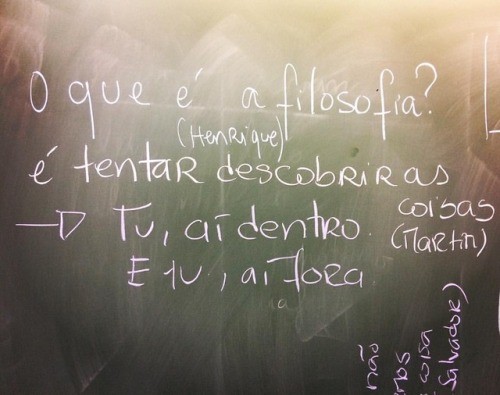 O que é a filosofia?
(Henrique)
é tentar descobrir as
coisas
(Martin)
Tu, aí dentro.
E tu, aí fora
não
coisa
Salvador)